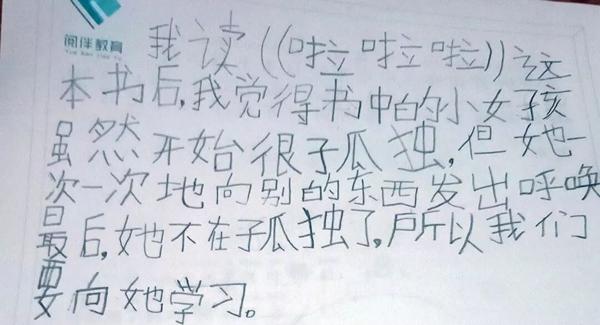 阅伴教育
我读((啦啦啦))这
本书后,我觉得书中的小女孩
虽然开始很孤独,但她一
次一次地向别的东西发出呼唤
最后,她不在孤独了,所以我们
要向她学习。